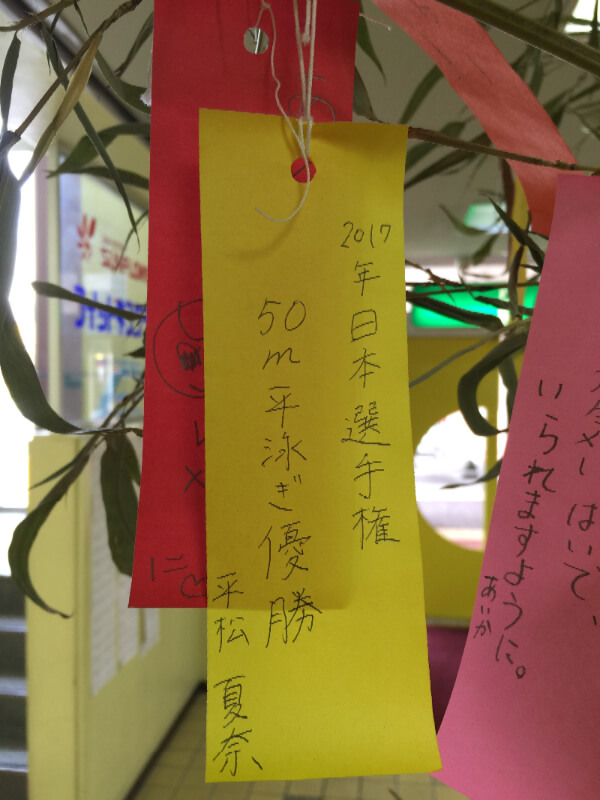 2017年日本選手権
50m平泳ぎ優勝
平松 夏奈
はいて、
いられますように。
あいか